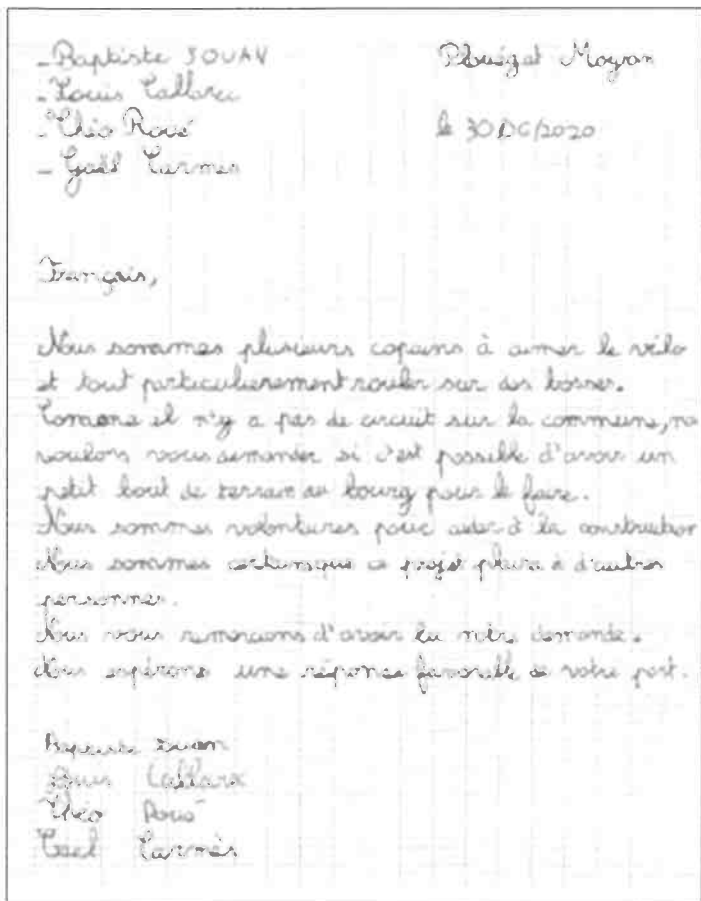 - Baptiste JOUAN
Plouégat Moysan
- Louis Callarec
- Théo Roué
le 30 06/2020
- Gaël Carmes
François,
Nous sommes plusieurs copains à aimer le vélo
et tout particulierement rouler sur des bosses.
Comme il n'y a pas de circuit sur la commune,
voulons vous demander si c'est possible d'avoir un
petit bout de terrain au bourg pour le faire.
Nous sommes volontaires pour aider à la construction
Nous sommes certains que ce projet plaira à d'autres
personnes.
Nous vous remercions d'avoir lu notre demande.
Nous espérons une réponse favorable de votre part.
Baptiste Jouan
Louis
Théo Roué
Gael Carmès